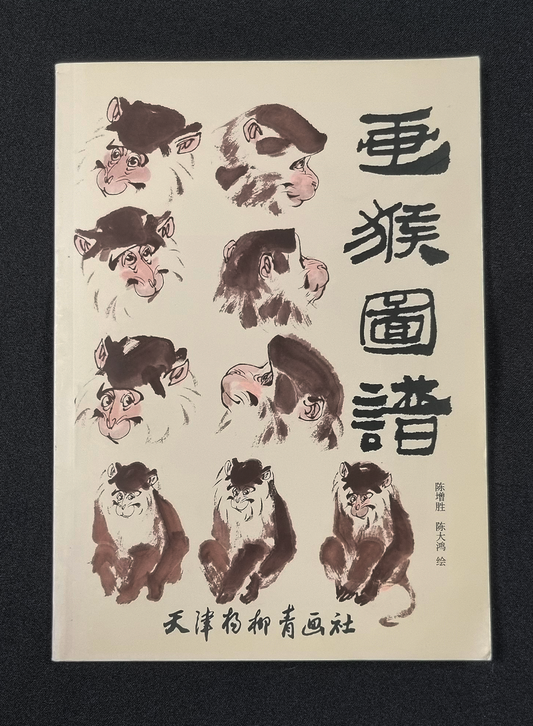 画猴圖譜
陈增胜 陈大鸿 绘
天津杨柳青画社